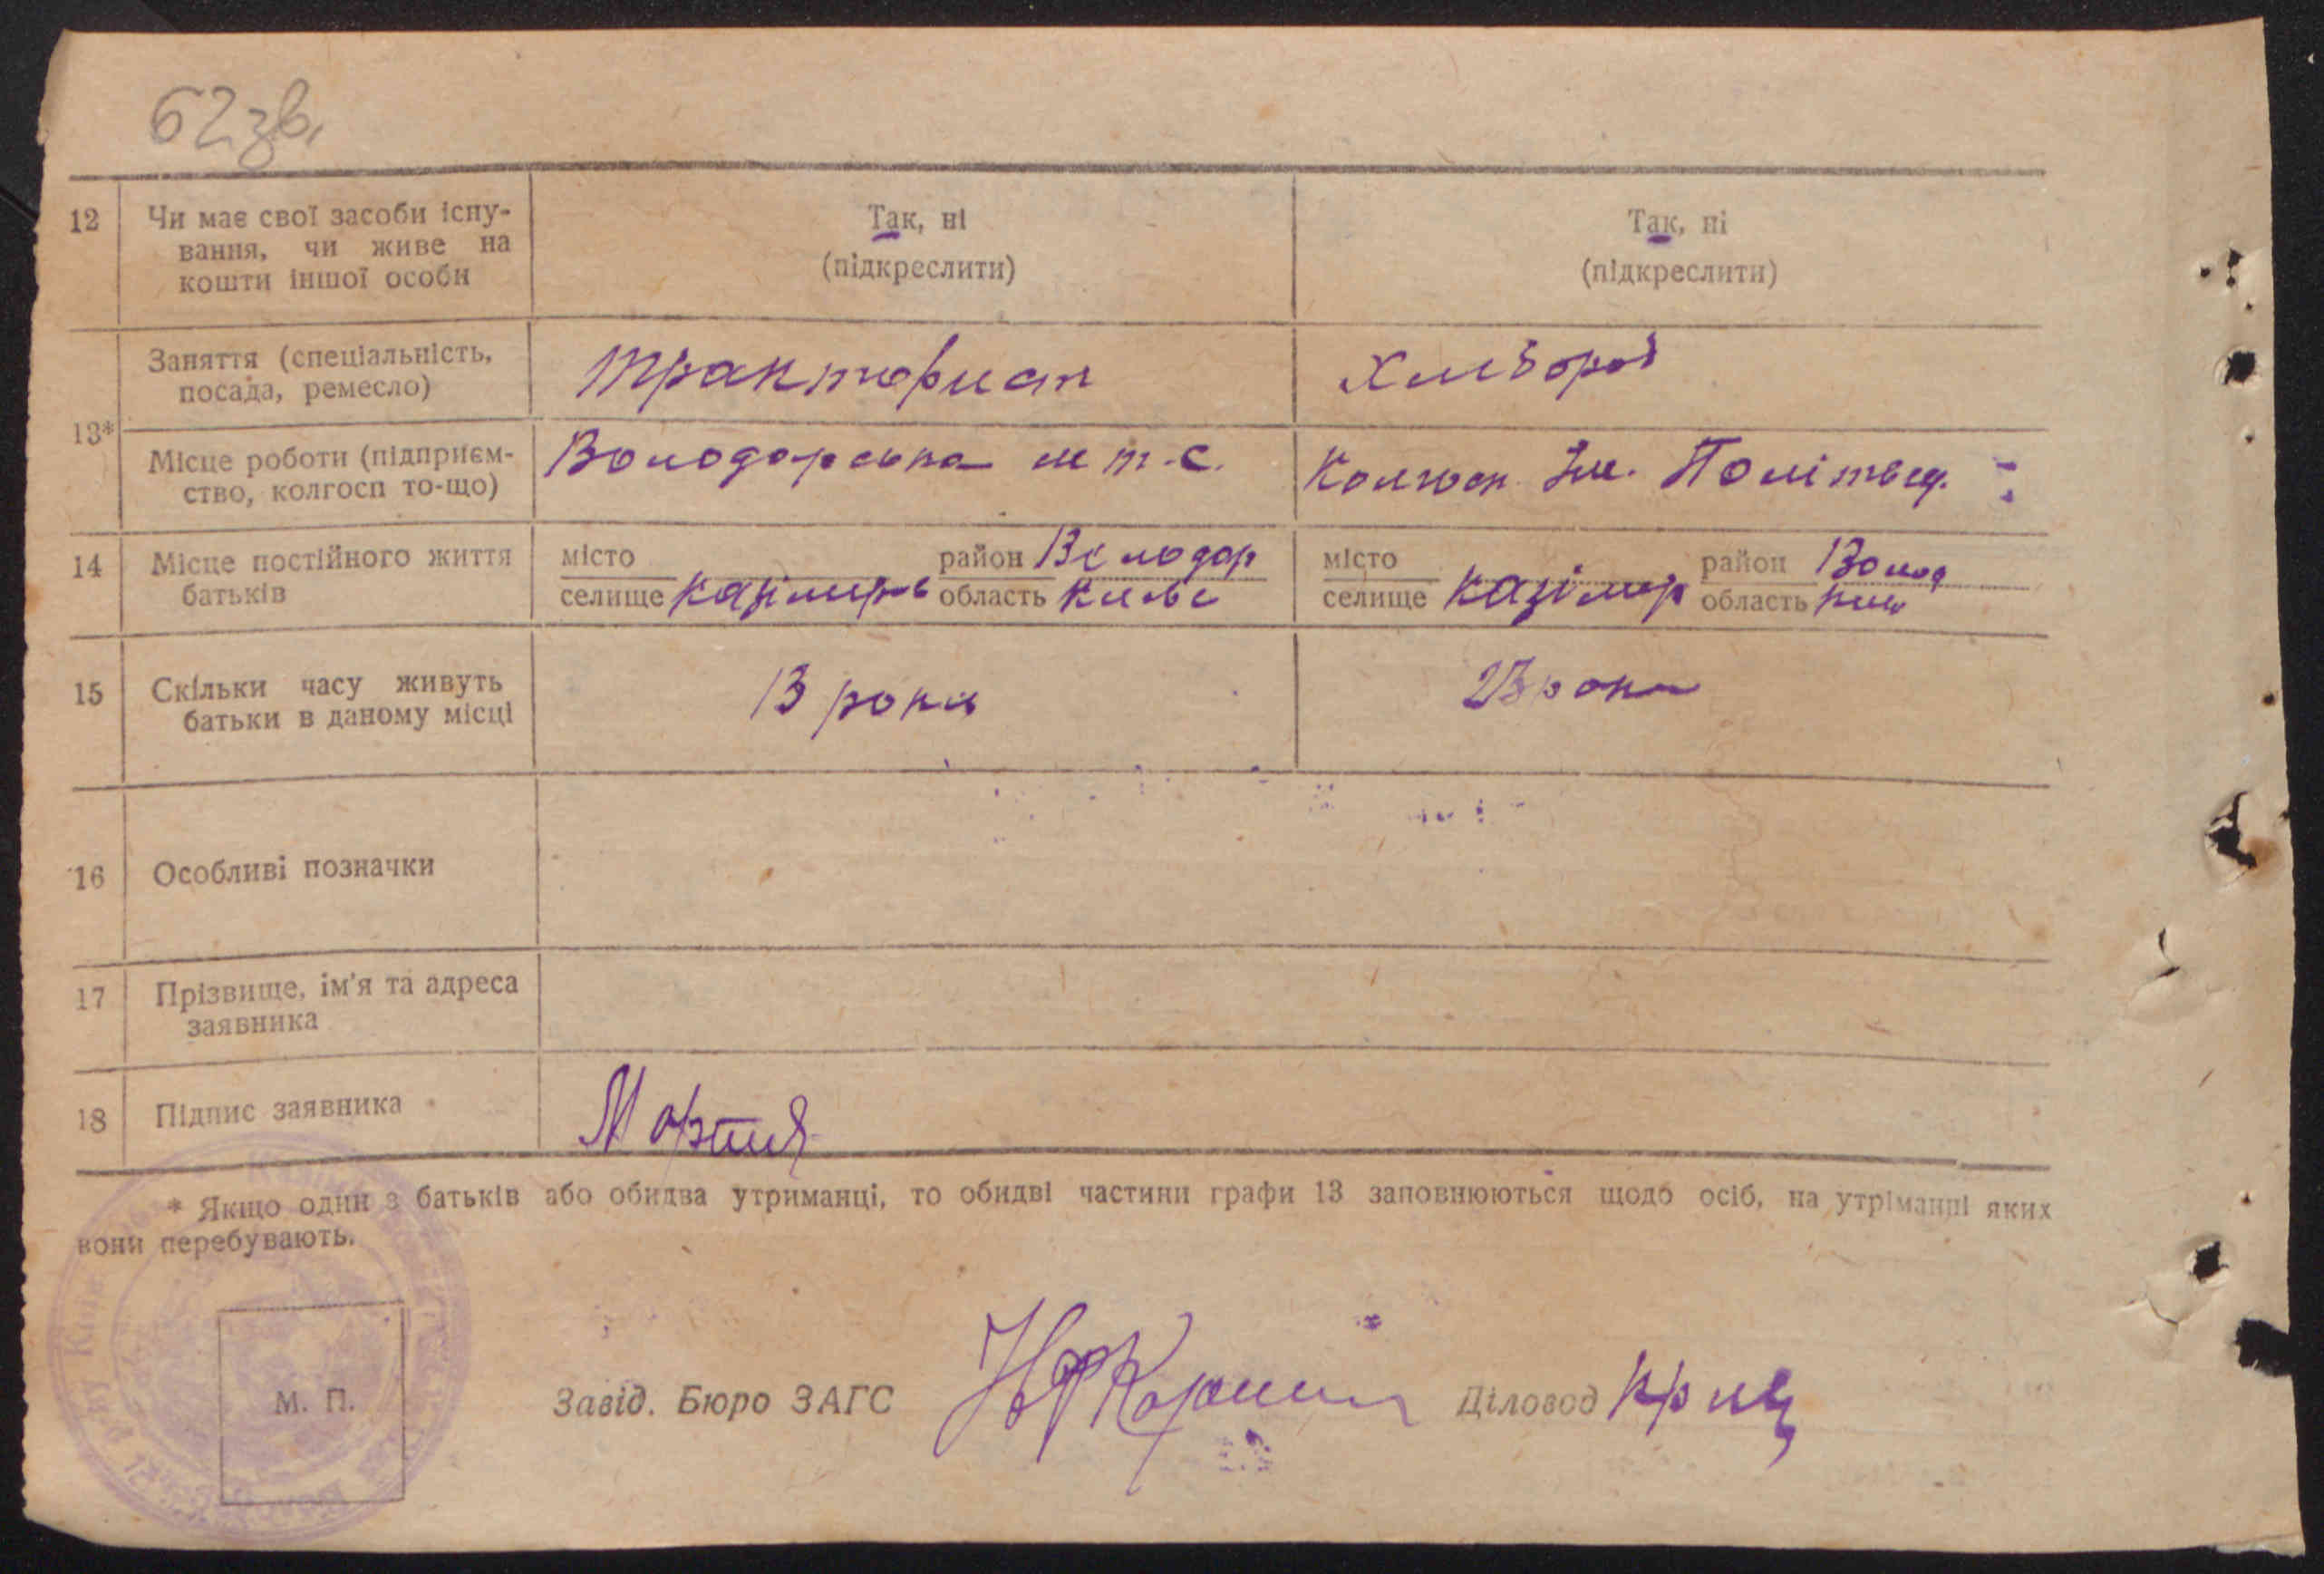 62 зв.
12 Чи має свої засоби існу-
вання, чи живе на
кошти іншої особи
Так, ні
(підкреслити)
Так, ні
(підкреслити)
13*
Заняття (спеціальність,
посада, ремесло)
тракторист
Хлібороб
Місце роботи (підприєм-
ство, колгосп то-що)
Володарська м т.с.
Колгосп Ім. Політвід.
14 Місце постійного життя
батьків
місто
селище Казімирів
район Володар
область Київс
місто
селище Казімир
район Волод
область Київ
15 Скільки часу живуть
батьки в даному місці
13 роки
23 роки
16 Особливі позначки
17 Прізвище, ім'я та адреса
заявника
18 Підпис заявника
* Якщо один з батьків або обидва утриманці, то обидві частини графи 13 заповнюються щодо осіб, на утріманні яких
вони перебувають.
М. П.
Завід. Бюро ЗАГС
Діловод